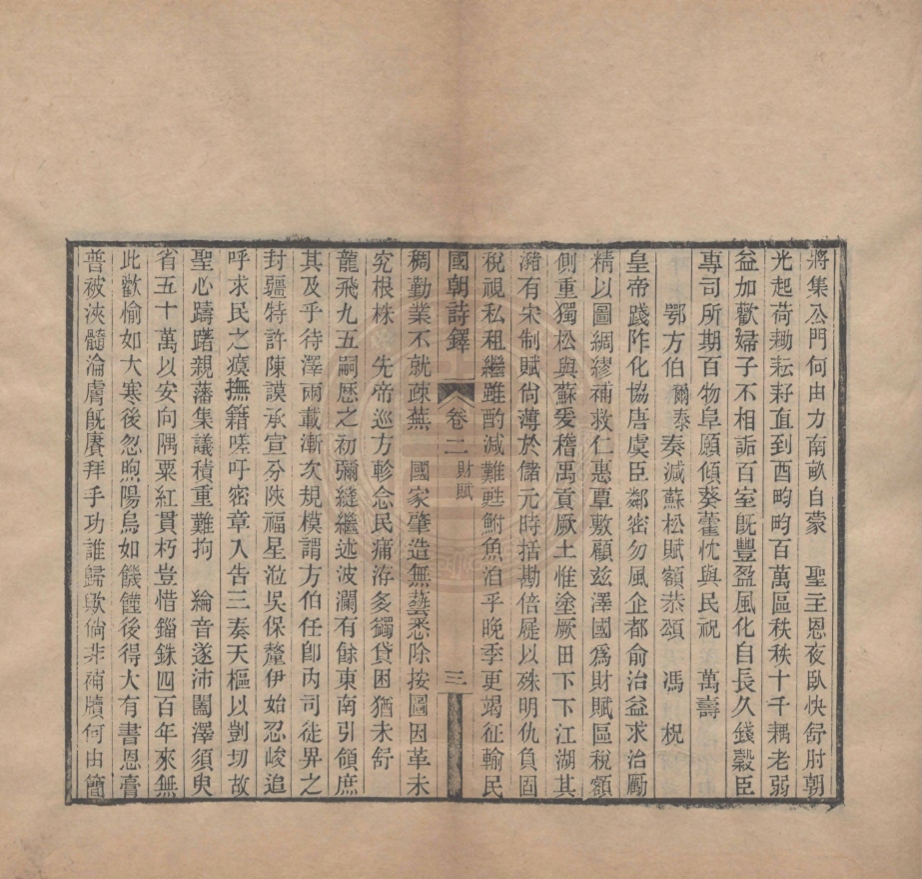 將集公門何由力南畝自蒙　聖主恩夜臥快舒肘朝
光起荷耡耘耔直到酉畇畇百萬區秩秩十千耦老弱
益加歡婦子不相詬百室旣豐盈風化自長久錢穀臣
專司所期百物阜願傾葵藿忱與民祝　萬壽
鄂方伯爾泰奏減蘇松賦額恭頌　馮柷
皇帝踐阼化協唐虞臣鄰密勿風企都俞治益求治勵
精以圖綢繆補救仁惠覃敷顧兹澤國爲財賦區稅額
側重獨松與蘇爰稽禹貢厥土惟塗厥田下下江湖其
瀦有宋制賦尙薄於儲元時括勘倍屣以殊明仇負固
稅視私租繼雖酌減難甦鮒魚泊乎晚季更竭征輸民
國朝詩鐸　卷二　財賦　三
稠勤業不就疎蕪　國家肇造無藝悉除按圖因革未
究根株　先帝巡方軫念民痡洊多蠲貸困猶未舒
龍飛九五嗣歴之初彌縫繼述波瀾有餘東南引領庶
其及乎待澤兩載漸次規模謂方伯任卽內司徒畀之
封疆特許陳謨承宣分陝福星涖吳保釐伊始忍峻追
呼求民之瘼撫籍嗟吁密章入告三奏天樞以剴切故
聖心躊躇親藩集議積重難拘　綸音遂沛闓澤須臾
省五十萬以安向隅粟紅貫朽豈惜錙銖四百年來無
此歡愉如大寒後忽煦陽烏如饑饉後得大有書恩膏
普被浹髓淪膚旣賡拜手功誰歸歟倘非補牘何由簡